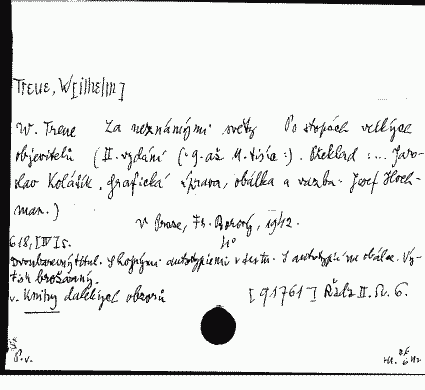 Treue, W[ilhelm]
W. Treue Za neznámými světy Po stopách velkých
objevitelů (II. vydání (: 9. až 11. tisíc :). Překlad : ... Jaro-
slav Kolášík, grafická úprava, obálka a vazba. Josef Hoch-
man.)
v Praze, Fr. Borový, 1942.
618, [IV] s. 4°
Dvoubarevný titul. S kopiemi autotypiemi v textu. S autotypií na obálce. Vý-
tisk brožovaný.
v. Knihy dalekých obzorů
[91761] Řada II. Sv. 6.
P. v.